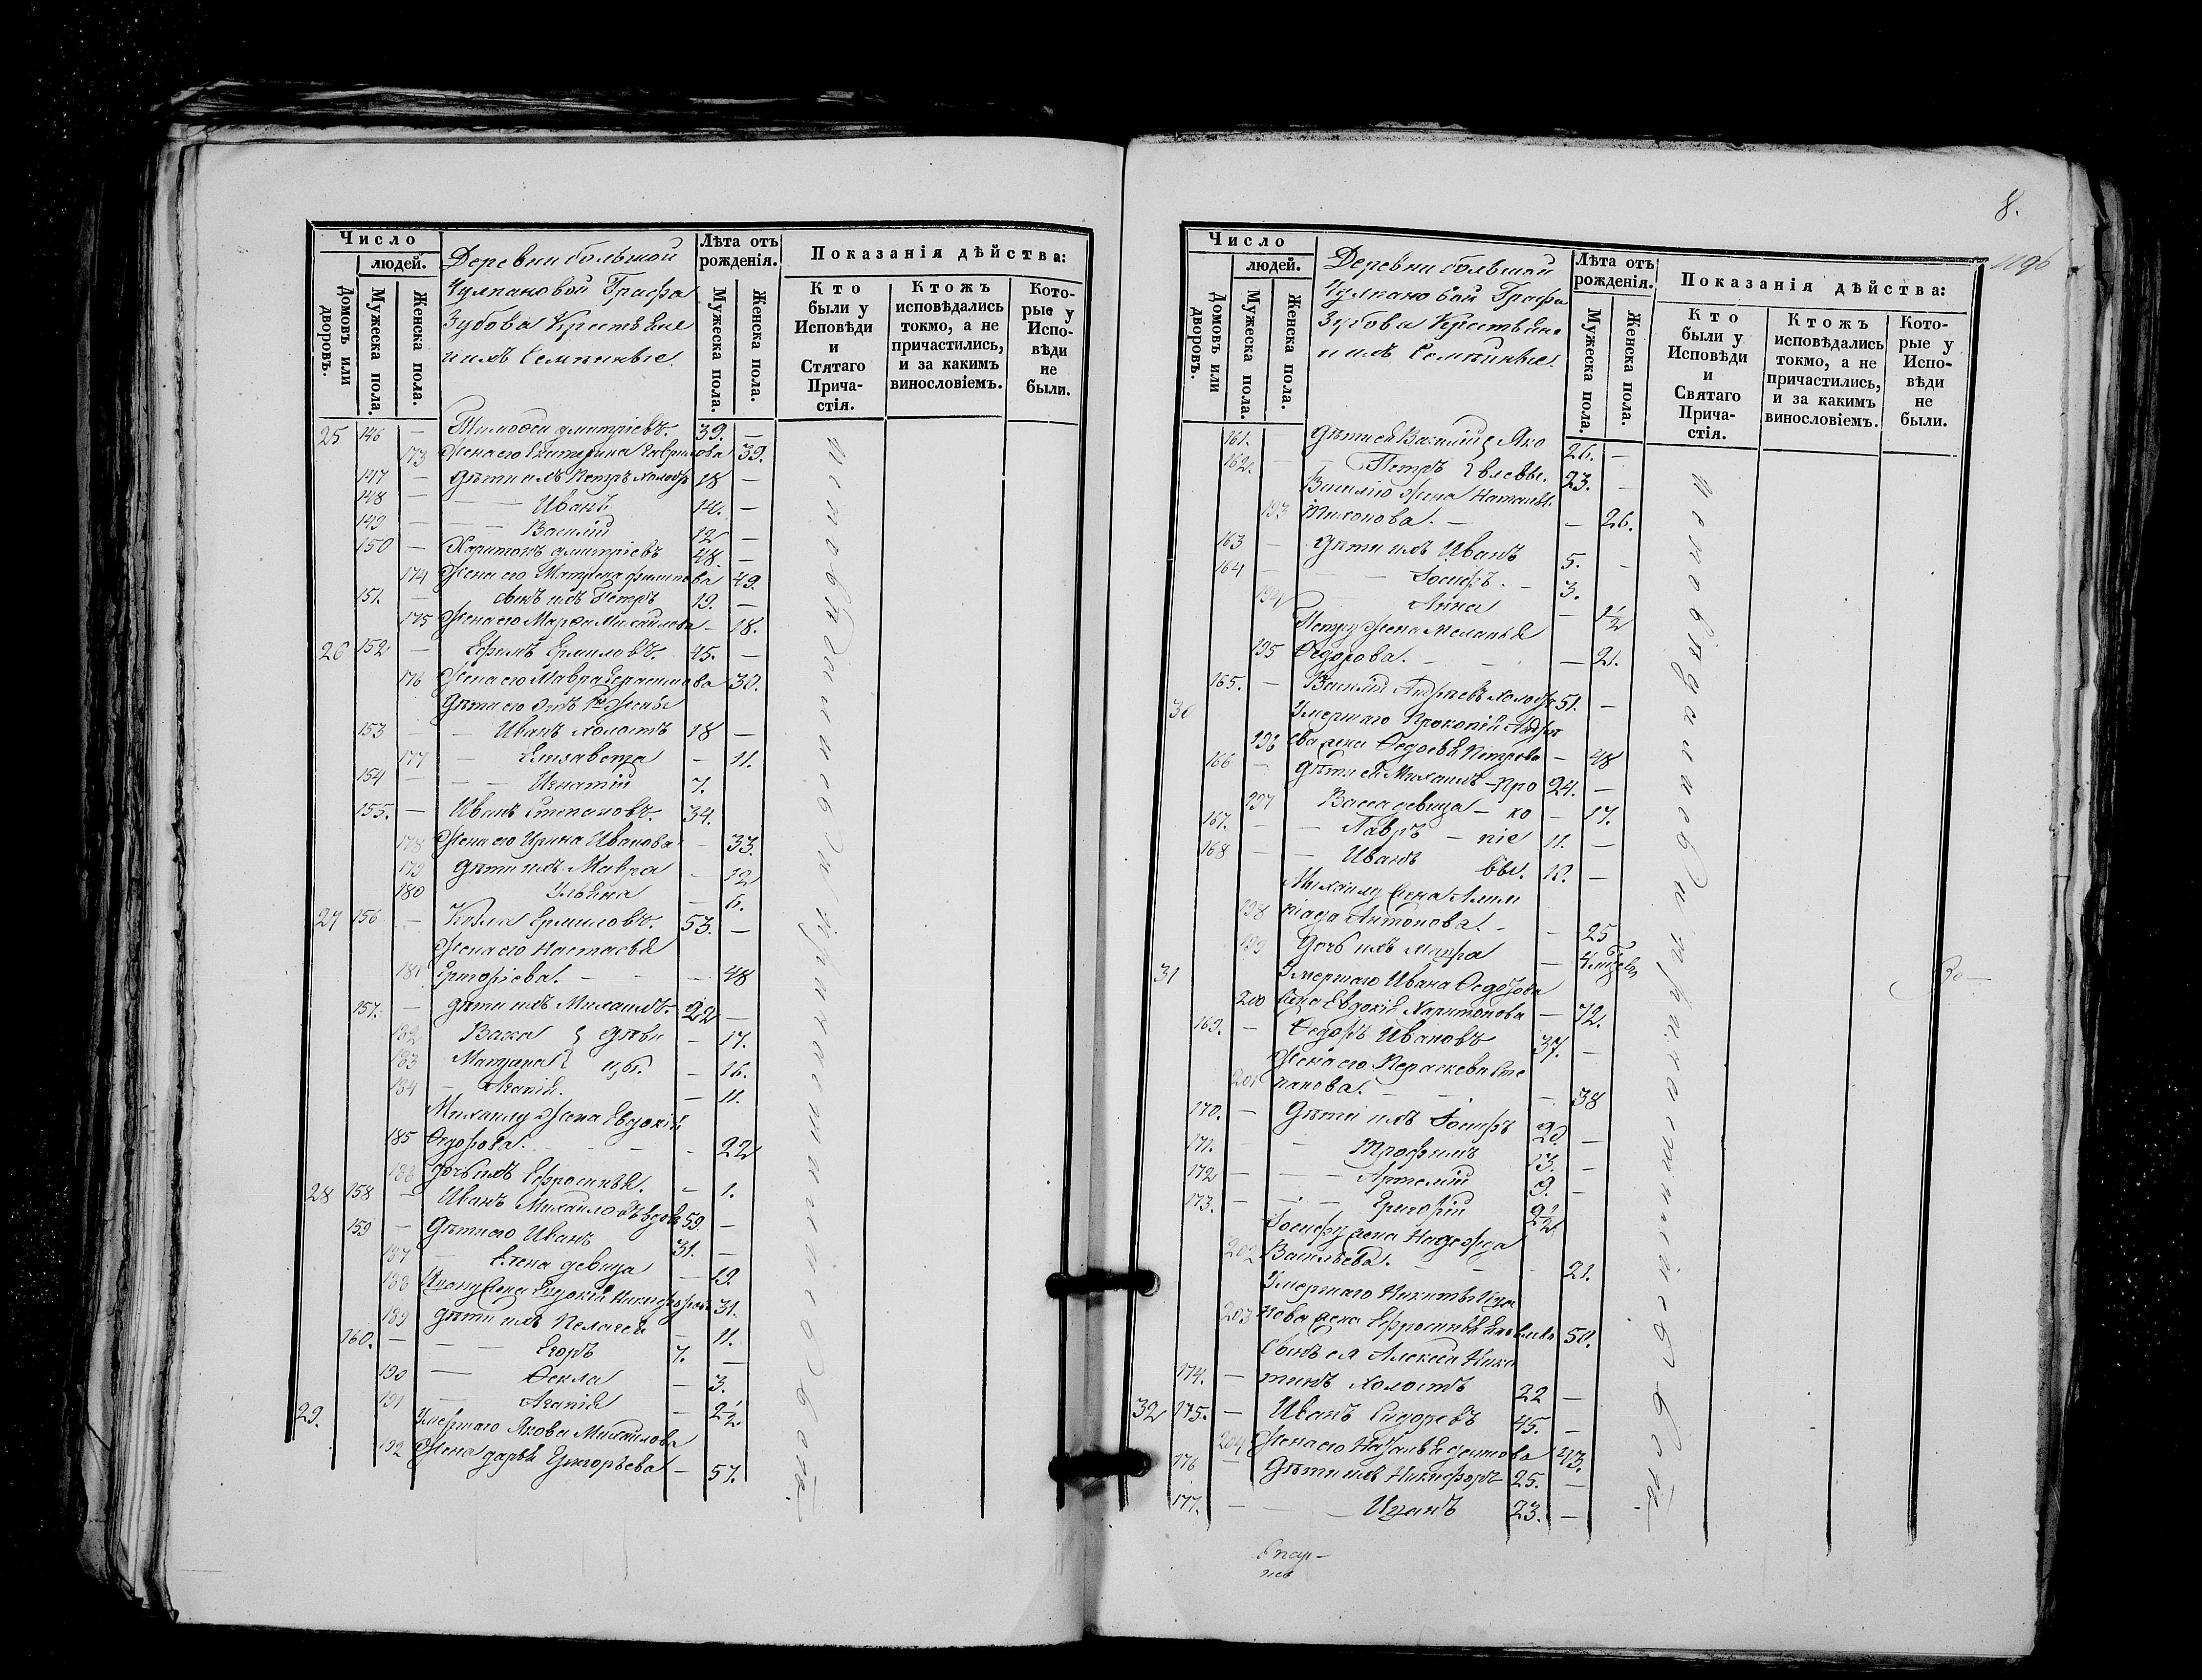 Число
людей.
Домовъ или дворовъ.
Мужеска пола.
Женска пола.
Деревни большой
Чулпановой Графа
Зубова Крестьяне
и ихъ Семѣйные.
Лѣта отъ рожденія.
Мужеска пола.
Женска пола.
Показанія дѣйства:
Кто были у Исповѣди и Стятаго Причастія.
Ктожъ исповѣдались токмо, а не причастились, и за какимъ винословіемъ.
Которые у Исповѣди не были.
25 146 — Тимофей Дмитріевъ. 39. —
173 Жена его Екатерина Гаврилова 39.
147 — Дѣти ихъ Петръ холостъ 18 —
148 — — — Иванъ 14. —
149 — — — Василій 12 —
150 — Харитонъ Дмитріевъ 48. —
174 Жена его Матрена Филипова 49.
151. — сынъ ихъ Петръ 19. —
175 Жена его Марфа Михайлова — 18.
26 152 — Ефимъ Ермиловъ. 45. —
176 Жена его Мавра Герасимова 30.
Дѣти его отъ 1й Жены
153 — Иванъ холостъ 18 —
177 — Елизавета — 11.
154 — — — Игнатій 7.
155. — Иванъ Степановъ. 34.
178 Жена его Ирина Иванова — 33.
179 Дѣти ихъ Мавра — 12
180 Ульяна — 6.
27 156 — Козма Ермиловъ. 53. —
Жена его Настасья
181 Григорієва. — — — 48
157. — Дѣти ихъ Михаилъ. 22 —
182 Васса } дѣви — 17.
183 Матрена } цы. — 16.
184 — Агапія. — 11.
Михаилу Жена Евдокія
185 Федорова. — — — 22
186 дочь ихъ Ефросинья. — 1.
28 158 — Иванъ Михайловъ вдовъ 59. —
159 — Дѣти его Иванъ 31. —
187 — Елена девица — 19.
188 Ивану Жена Евдокія Никифорова 31.
189 Дѣти ихъ Пелагея — 11.
160. — — — Егоръ 7. —
190 — Фекла — 3.
191 — Агапія — 2½.
29. Умершаго Якова Михайлова
192 Жена Дарья Григорьева — 57.
исповѣдались и причастились всѣ.
8.
1196
Число
людей.
Домовъ или дворовъ.
Мужеска пола.
Женска пола.
Деревни большой
Чулпановой Графа
Зубова Крестьяне
и ихъ Семѣйные.
Лѣта отъ рожденія.
Мужеска пола.
Женска пола.
Показанія дѣйства:
Кто были у Исповѣди и Святаго Причастія.
Ктожъ исповѣдались токмо, а не причастились, и за какимъ винословіемъ.
Которые у Исповѣди не были.
161. — Дѣти ея Василій } Яко 26. —
162. — — Петръ } влевы. 23. —
Василію Жена Наталья
193 Тихонова. — — 26.
163 — Дѣти ихъ Иванъ 5. —
164 — — Іосифъ. — 3.
194 Анна — 1½
Петру Жена Меланья
195 Федорова. — — — 21.
165. — Василій Андреевъ холостъ 51. —
30 Умершаго Прокопія Андре
196 ева жена Федосья Петрова — 48
166 — Дѣти ея Михаилъ — Про 24. —
197 Васса девица — ко — 17.
167. — — Лавръ — піе 11. —
168 — — Иванъ вы. —
Михаилу Жена Алим
198 піада Антонова. — — 25
199 Дочь ихъ Марфа —
31 Умершаго Ивана Федотова
200 Жена Евдокія Харитонова — 72.
169. — Федоръ Ивановъ 37. —
Жена его Параскева Сте
201 панова. — — — 38
170. — Дѣти ихъ Іосифъ 20. —
171. — — Трофимъ 13. —
172 — — Артемій 9. —
173. — — — Григорій 2½
Іосифу жена Надежда
202 Васильева. — — — 21.
Умершаго Никиты Ива
203 нова жена Ефросинья Яковлева 50.
Сынъ ея Алексей Ники
174. — тинъ холостъ 22 —
32 175. — Иванъ Сидоровъ 45. —
204 Жена его Наталья 43.
176 Дѣти ихъ Никифоръ 25. —
177. — — — Иванъ 23. —
исповѣдались и причастились всѣ.